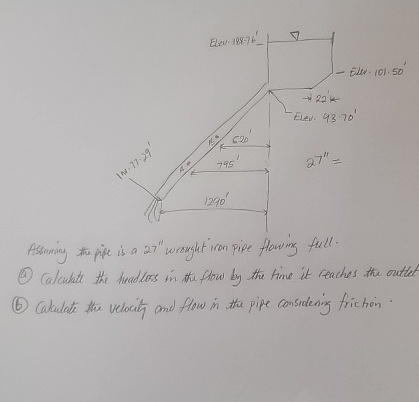 Elev. 188.76'
Elev. 101.50'
22'
Elev. 93.70'
620'
27" =
Inv. 77.29'
795'
1290'
Assuming the pipe is a 27" wrought iron pipe flowing full.
(a) Calculate the headloss in the flow by the time it reaches the outlet
(b) Calculate the velocity and flow in the pipe considering friction.